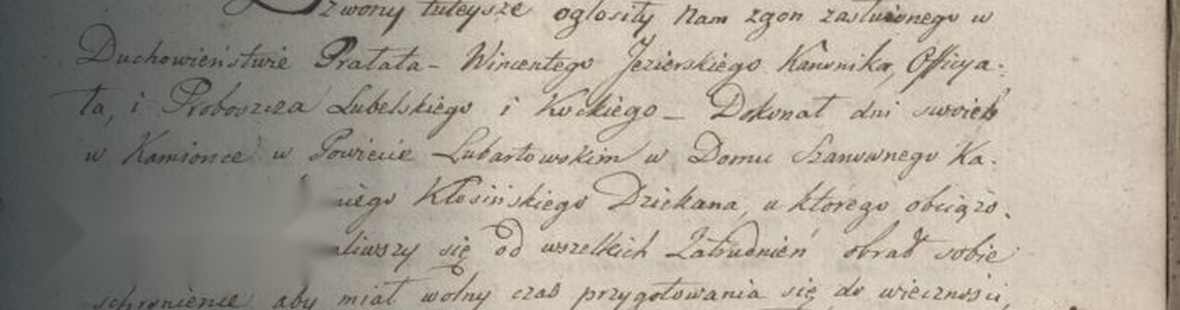 Dzwony tuteysze ogłosiły Nam zgon zasłużonego w
Duchowieństwie Prałata - Wincentego Jezierskiego Kanonika, Officya-
ła, i Proboszcza Lubelskiego i Kockiego _ Dokonał dni swoich
w Kamionce w Powiecie Lubartowskim w Domu Szanownego Ka-
niego Kłosińskiego Dziekana, u którego obciążo-
liwszy się od wszelkich Zatrudnień obrał sobie
schronienie aby miał wolny czas przygotowania się do wieczności,